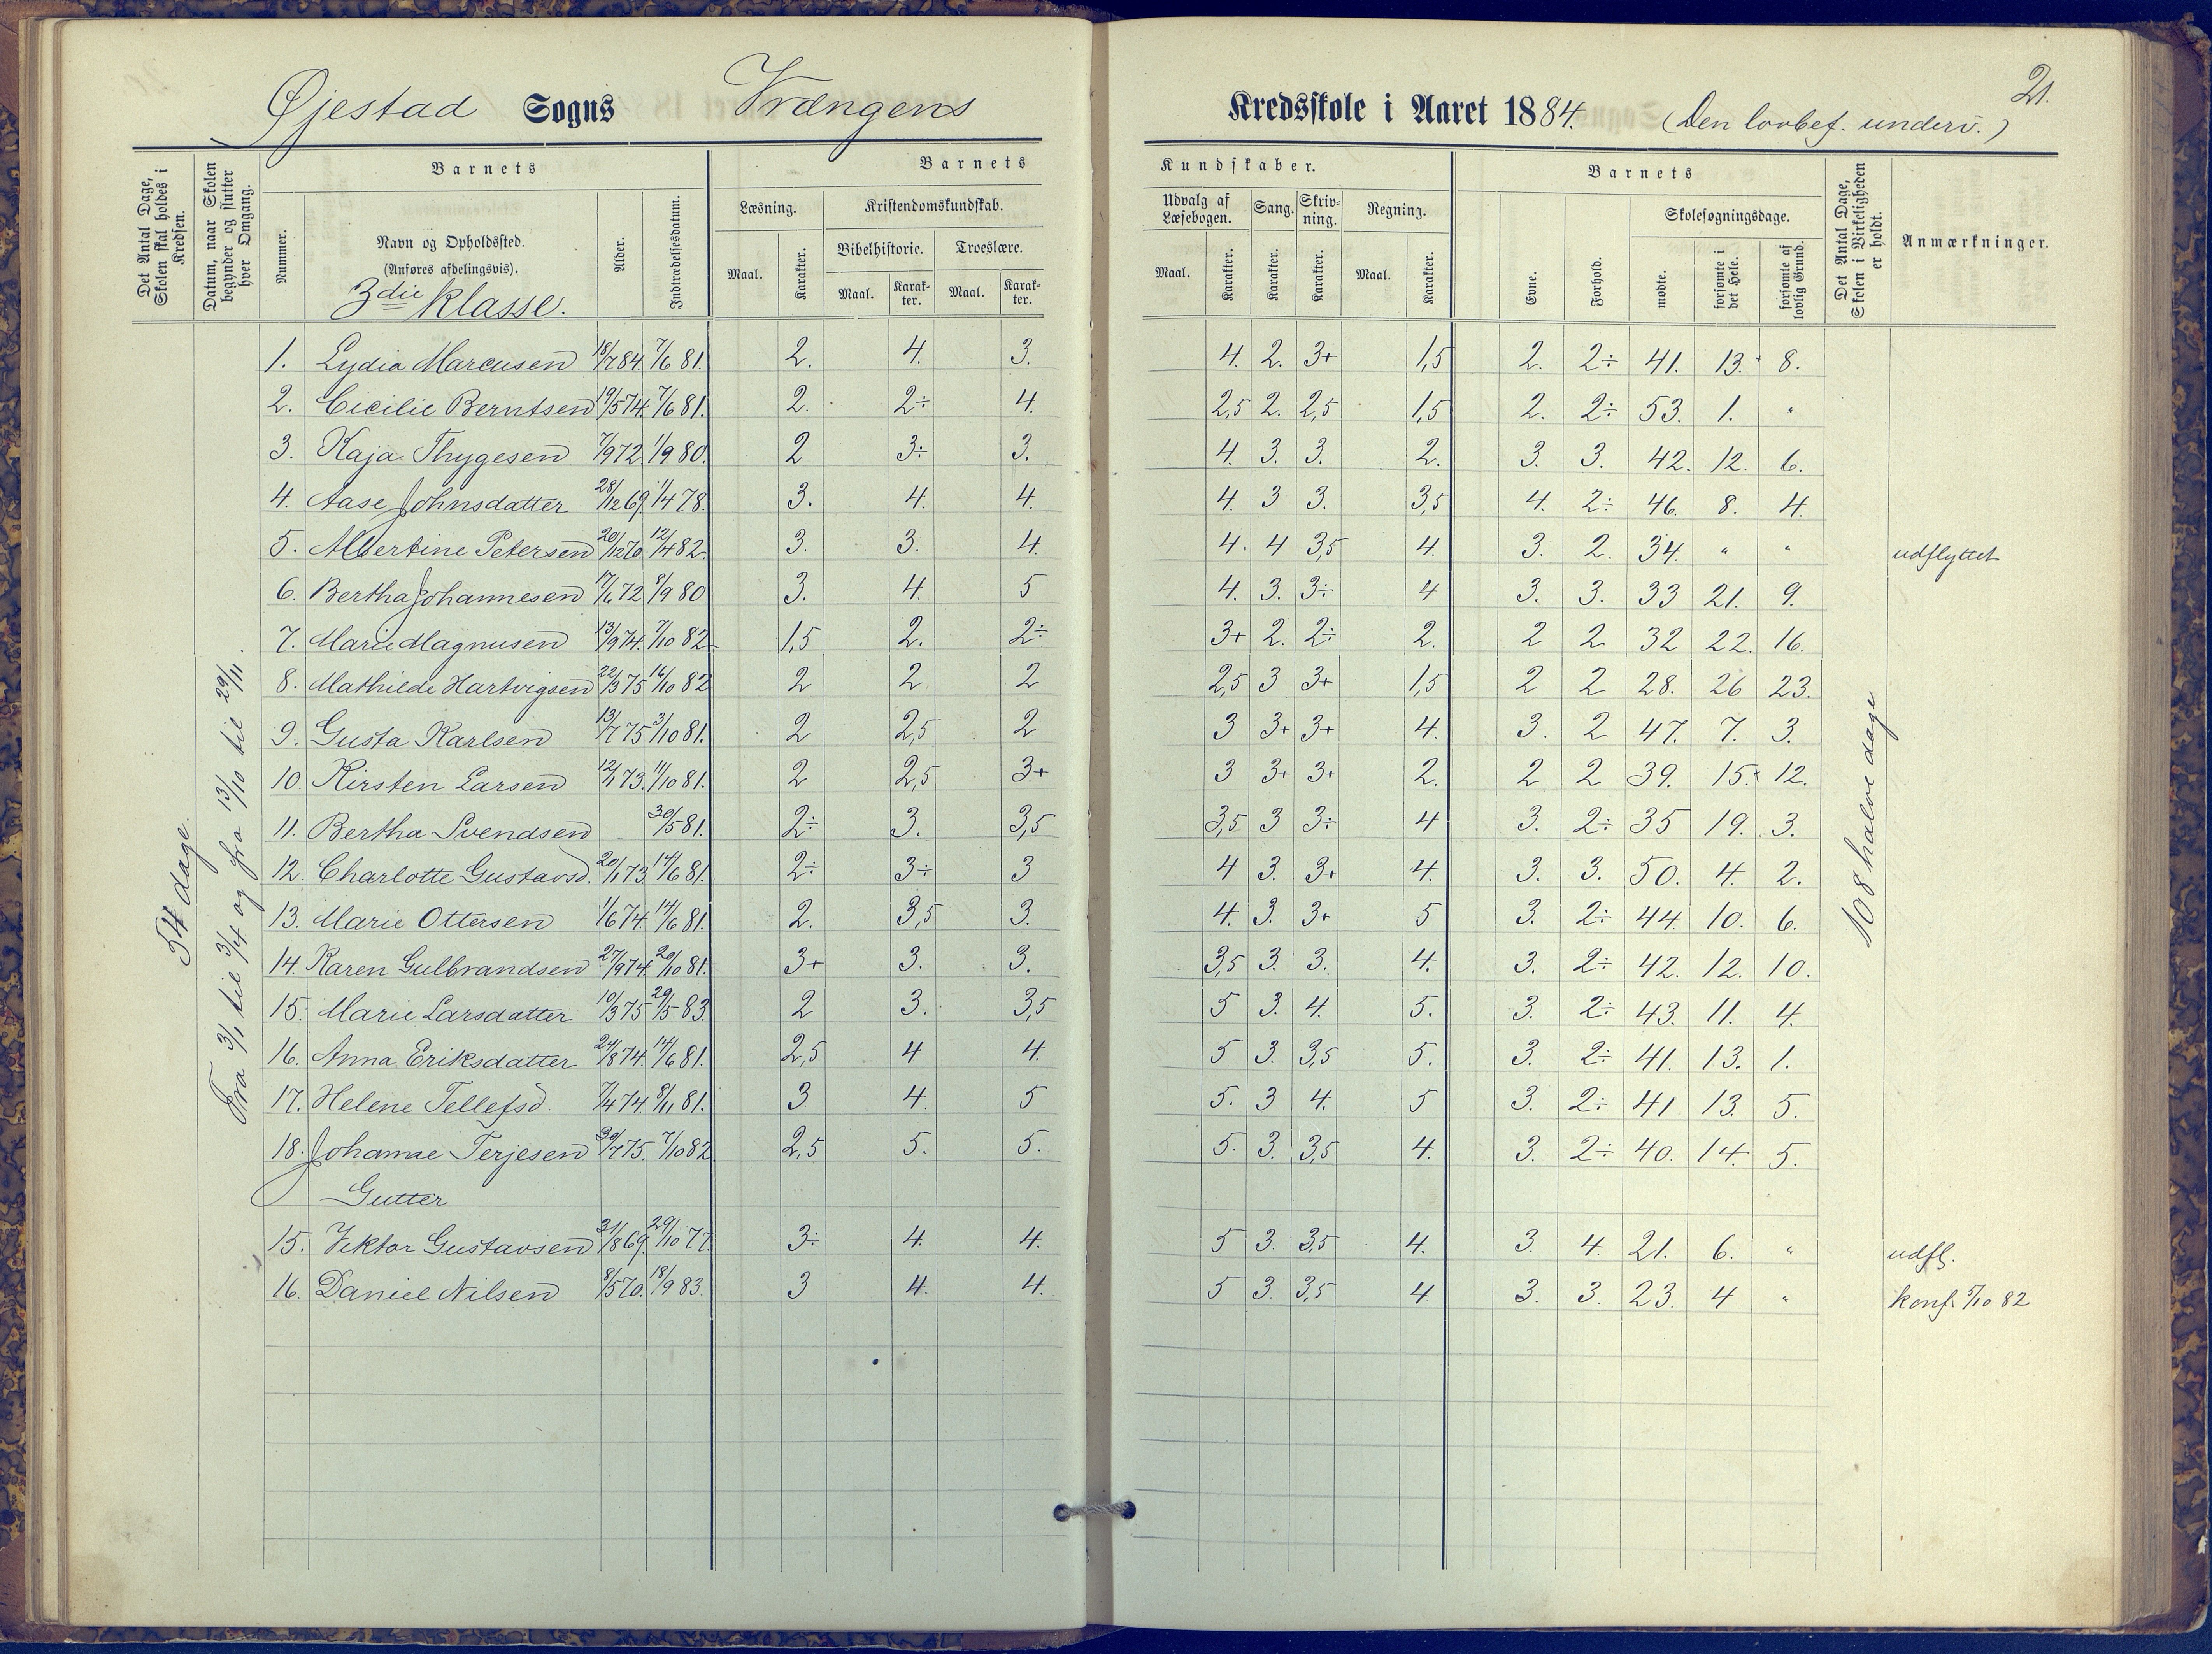 21.
Øjestad Sogns Vrængens Kredsskole i Aaret 1884. (Den lovbef. underv.)
Det Antal Dage, Skolen skal holdes i Kredsen.
Datum, naar Skolen begynder og slutter hver Omgang.
Barnets
Nummer.
Navn og Opholdssted.
(Anføres afdelingsvis).
3die Klasse.
Alder.
Indtrædelsesdatum.
Barnets Kundskaber.
Læsning. Kristendomskundskab. Udvalg af Læsebogen. Sang. Skrivning. Regning.
Bibelhistorie. Troeslære.
Maal. Karakter. Maal. Karakter. Maal. Karakter. Maal. Karakter. Karakter. Karakter. Maal. Karakter.
Barnets
Evne. Forhold. Skolesøgningsdage.
mødte. forsømte i det Hele. forsømte af lovlig Grund.
Det Antal Dage, Skolen i Virkeligheden er holdt.
Anmærkninger.
54 dage.
Fra 3/1 til 3/4 og fra 13/10 til 29/11.
108 halve dage
1. Lydia Marcusen 18/7 84. 7/6 81. 2. 4. 3. 4. 2. 3+ 1,5 2. 2÷ 41. 13. 8.
2. Cicilie Berntsen 19/5 74. 7/6 81. 2. 2÷ 4. 2,5 2. 2,5 1,5 2. 2÷ 53. 1. "
3. Kaja Thygesen 7/9 72. 1/9 80. 2 3÷ 3. 4. 3. 3. 2. 3. 3. 42. 12. 6.
4. Aase Johnsdatter 28/12 69. 1/4 78. 3. 4. 4. 4. 3 3. 3,5 4. 2÷ 46. 8. 4.
5. Albertine Petersen 20/12 70. 12/4 82. 3. 3. 4. 4. 4 3,5 4. 3. 2. 34. " " udflyttet
6. Bertha Johannesen 17/6 72 8/9 80 3. 4. 5 4. 3. 3÷ 4 3. 3. 33 21. 9.
7. Marie Magnusen 13/9 74. 7/10 82 1,5 2. 2÷ 3+ 2. 2÷ 2. 2 2 32 22. 16.
8. Mathilde Hartvigsen 22/3 75 16/10 82 2 2 2 2,5 3 3+ 1,5 2 2 28. 26 23.
9. Gusta Karlsen 13/7 75 3/10 81. 2 2,5 2 3 3+ 3+ 4. 3. 2 47. 7. 3.
10. Kirsten Larsen 12/1 73. 11/10 81. 2 2,5 3+ 3 3+ 3+ 2. 2 2 39. 15. 12.
11. Bertha Svendsen 30/5 81. 2÷ 3. 3,5 3,5 3 3÷ 4 3. 2÷ 35 19. 3.
12. Charlotte Gustavsd. 20/1 73. 14/6 81. 2÷ 3÷ 3 4 3. 3+ 4. 3. 3. 50. 4. 2.
13. Marie Ottersen 1/6 74. 14/6 81. 2. 3,5 3. 4. 3. 3+ 5 3. 2÷ 44. 10. 6.
14. Karen Gulbrandsen 27/9 74. 20/10 81. 3+ 3. 3. 3,5 3. 3. 4. 3. 2÷ 42. 12. 10.
15. Marie Larsdatter 10/3 75 29/5 83. 2 3. 3,5 5 3. 4. 5. 3. 2÷ 43. 11. 4.
16. Anna Eriksdatter 24/8 74. 14/6 81. 2,5 4 4. 5 3. 3,5 5. 3. 2÷ 41. 13. 1.
17. Helene Tellefsd. 7/4 74. 8/11 81. 3 4. 5 5. 3 4. 5 3. 2÷ 41 13. 5.
18. Johanne Terjesen 30/7 75. 7/10 82 2,5 5. 5. 5. 3. 3,5 4. 3. 2÷ 40. 14. 5.
Gutter
15. Viktor Gustavsen 31/8 69. 29/10 77. 3÷ 4. 4. 5 3. 3,5 4. 3. 4. 21. 6. " udfl.
16. Daniel Nilsen 8/5 70. 18/9 83. 3 4. 4. 5 3. 3,5 4. 3. 3. 23. 4 " konf. 5/10 82